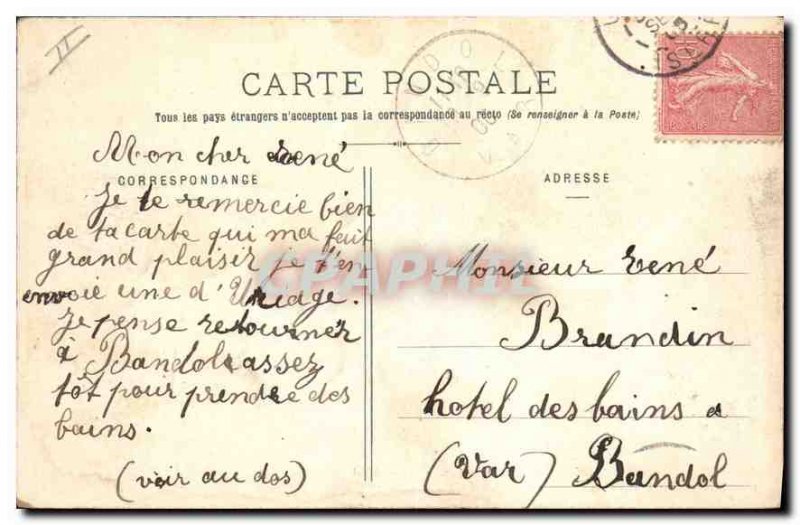 II
CARTE POSTALE
Tous les pays étrangers n'acceptent pas la correspondance au recto (Se renseigner à la Poste)
CORRESPONDANCE
Mon cher René
Je te remercie bien
de ta carte qui ma fait
grand plaisir je t'en
envoie une d'Uriage.
Je pense retourner
à Bandol assez
tôt pour prendre des
bains.
(voir au dos)
ADRESSE
Monsieur René
Brandin
hotel des bains a
(Var) Bandol
CPAPHIL